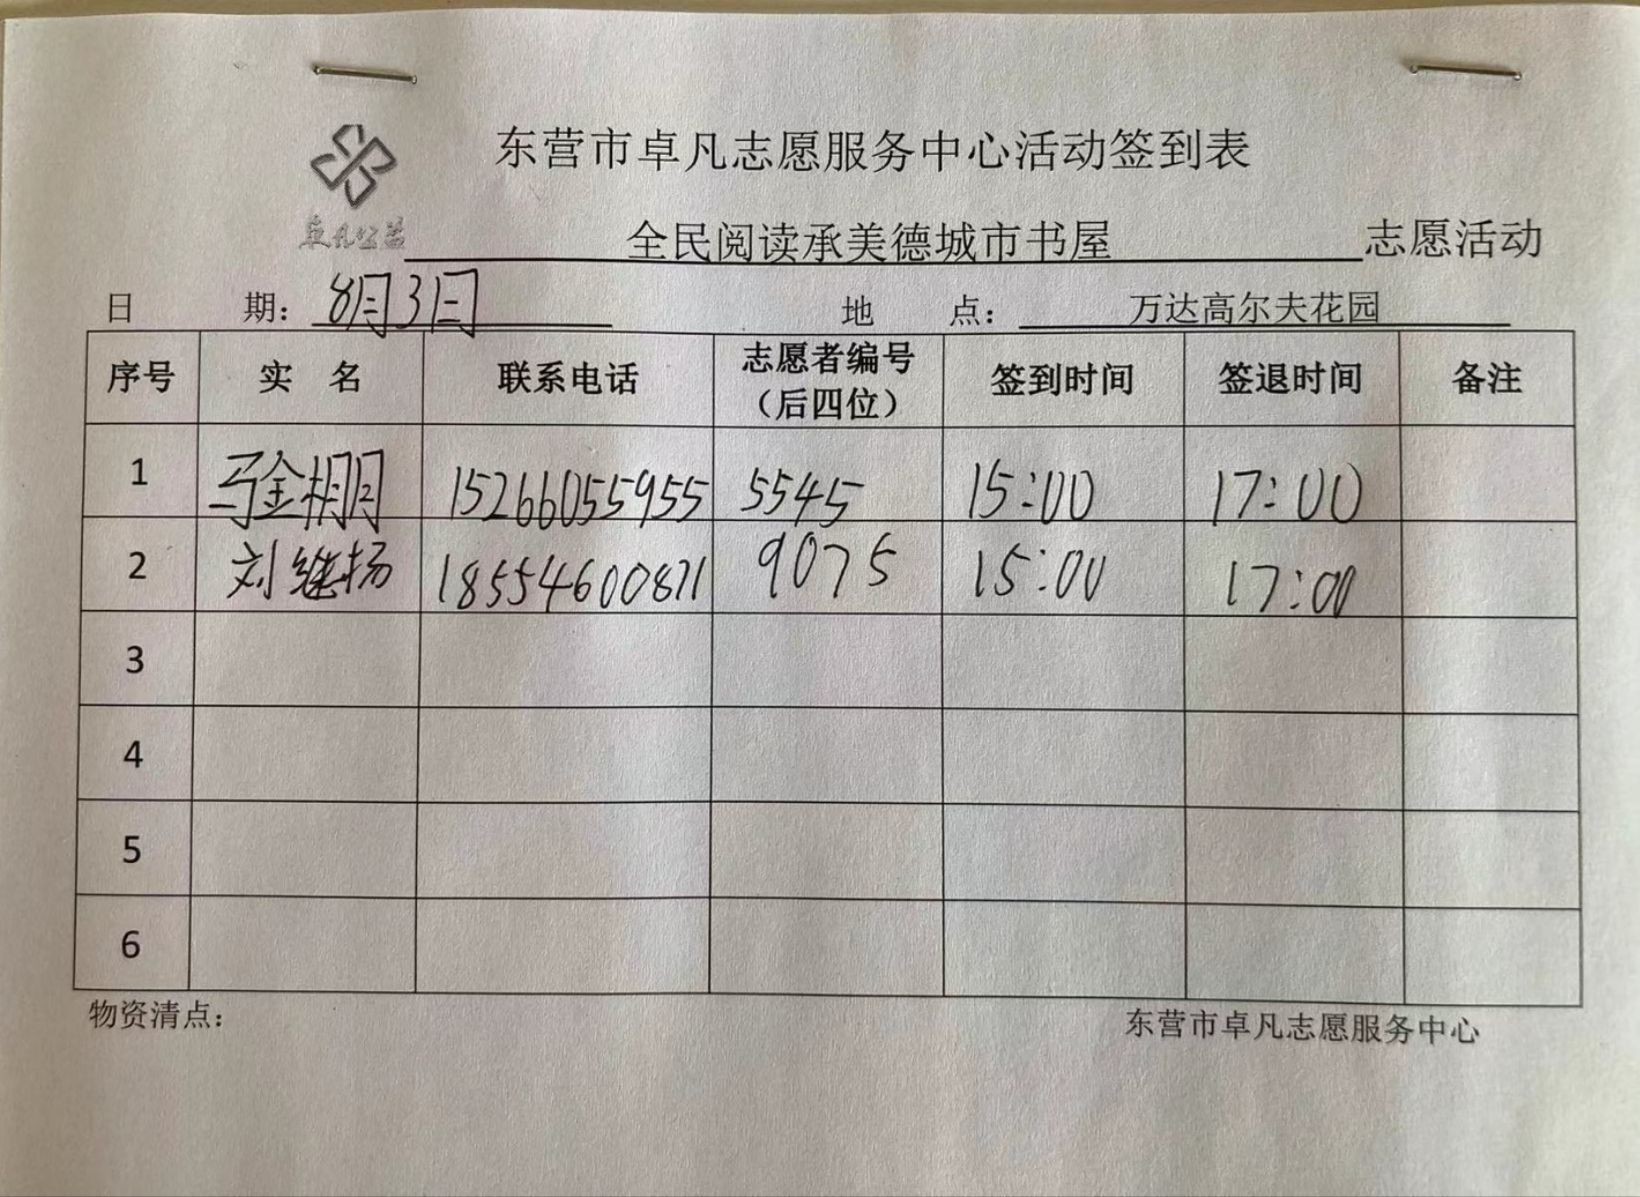 东营市卓凡志愿服务中心活动签到表
卓凡公益
全民阅读承美德城市书屋 志愿活动
日 期： 8月3日 地 点： 万达高尔夫花园
序号 实 名 联系电话 志愿者编号（后四位） 签到时间 签退时间 备注
1 马金桐月 15266055955 5545 15:00 17:00
2 刘继扬 18554600871 9075 15:00 17:00
3
4
5
6
物资清点： 东营市卓凡志愿服务中心